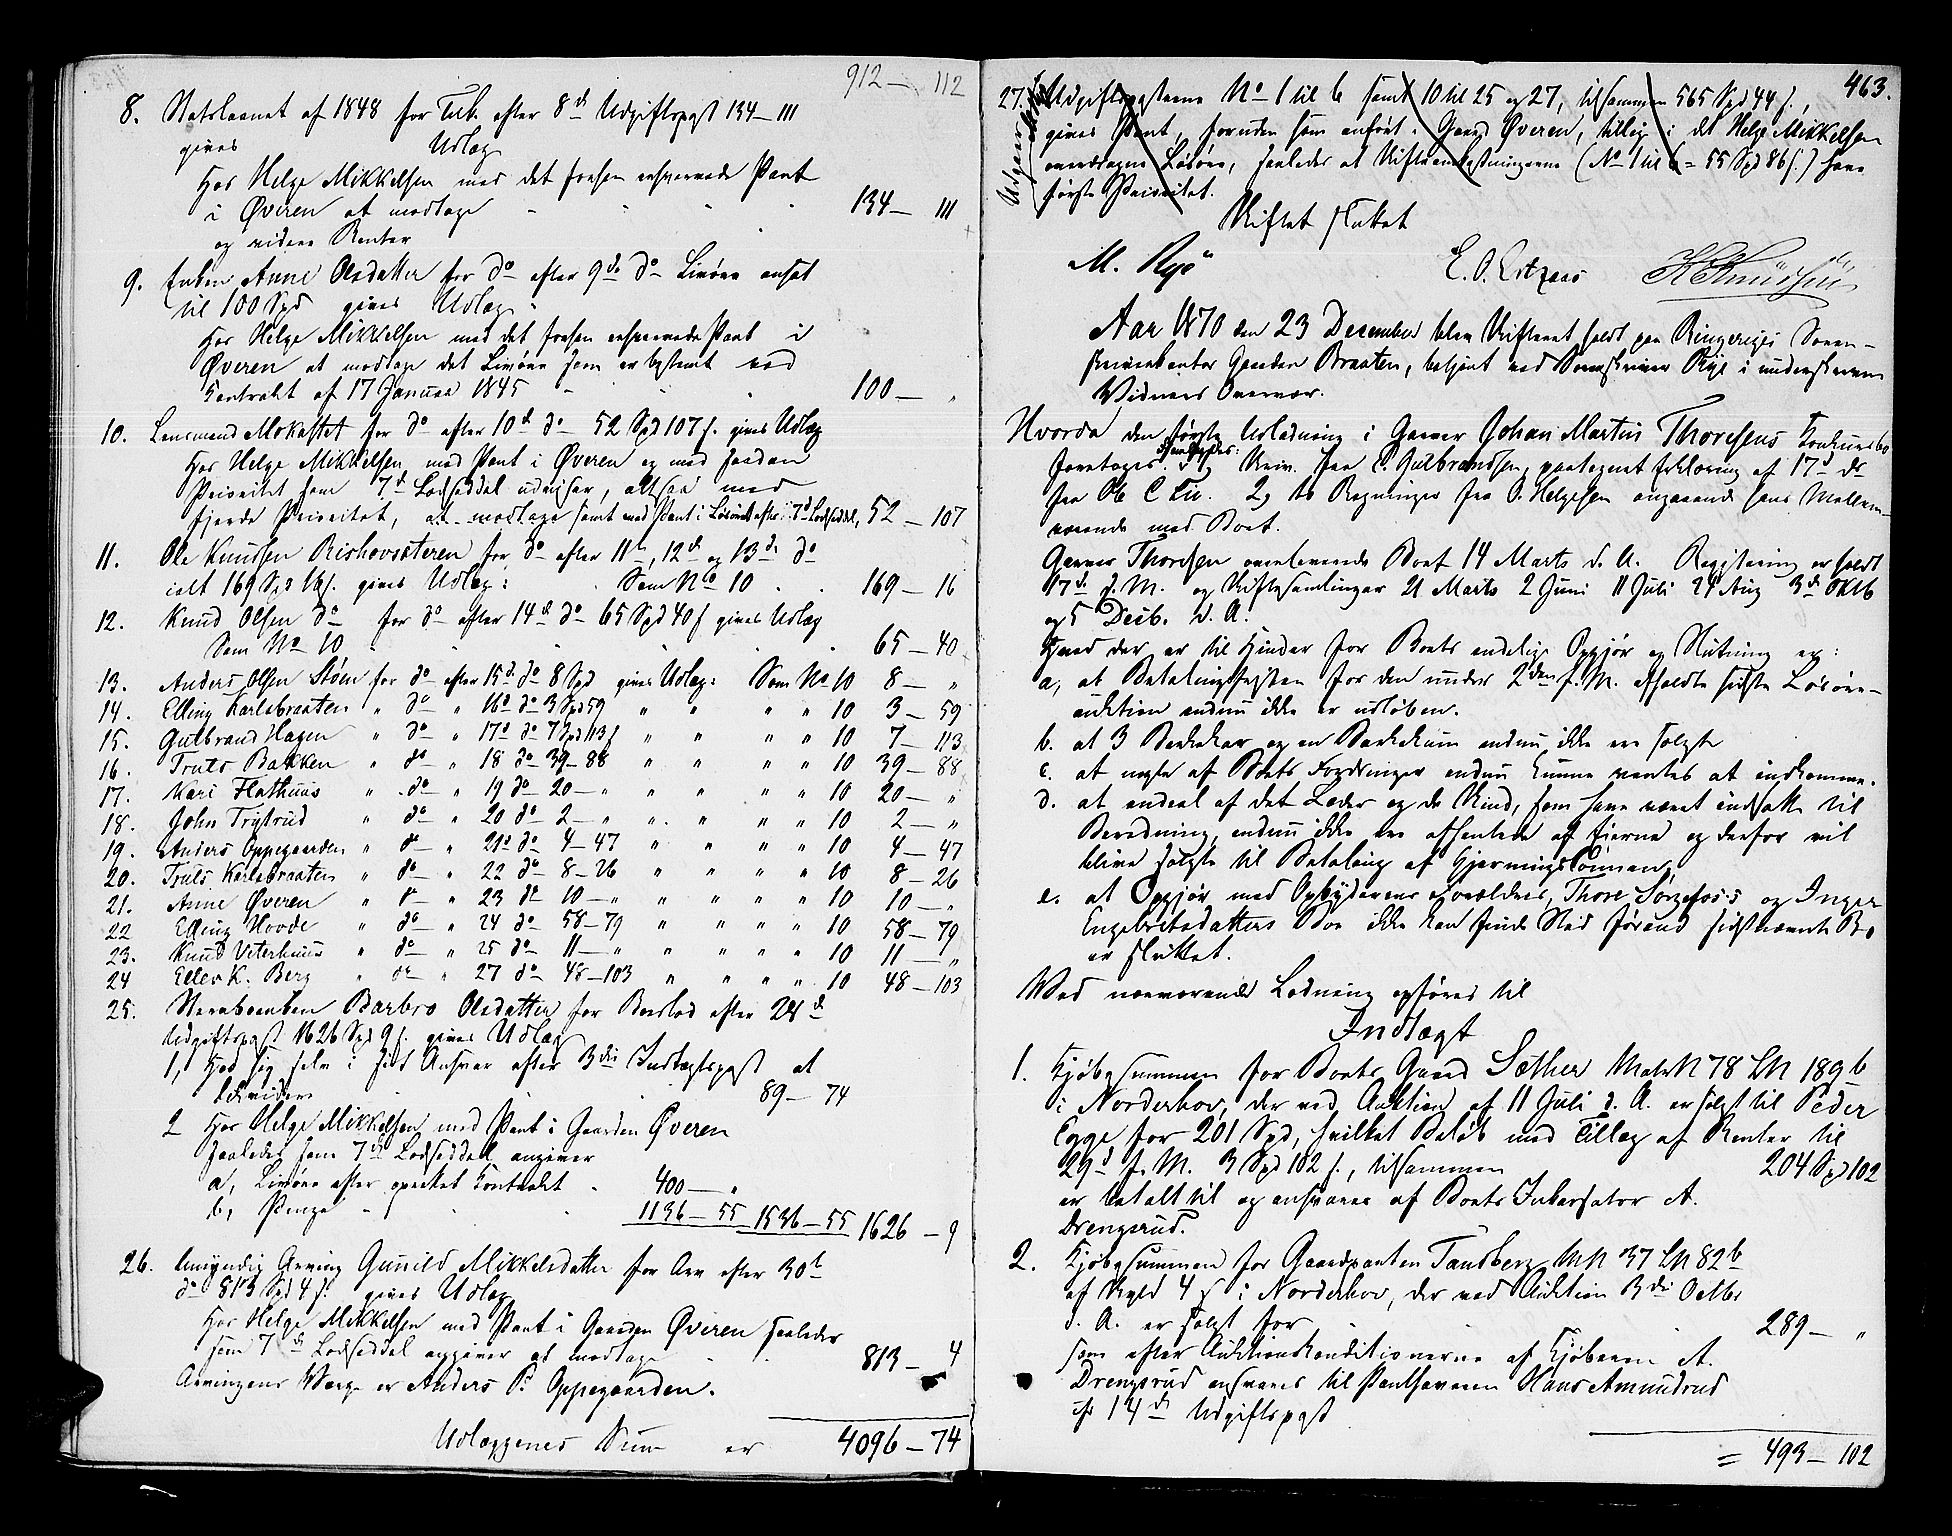 912 — 112
8. Statslaanet af 1848 for Tilb. efter 8de Udgiftspost 134–111
gives Udlæg
Hos Helge Mikkelsen med det forhen reserverede Pant
i Øveren at modtage 134 — 111
og videre Renter
9. Enken Anne Olsdatter for do efter 9de do Livøre ansat
til 100 Spd gives Udlæg.
Hos Helge Mikkelsen med det forhen reserverede Pant i
Øveren at modtage det Livøre som er bestemt ved
Kontrakt af 17 Januar 1845 100 — "
10. Lensmand Mokastet for do efter 10de do 52 Spd 107 s. gives Udlæg
Hos Helge Mikkelsen med Pant i Øveren og med saadan
Prioritet som 7de Lodseddel udviser, altsaa med
fjerde Prioritet, at modtage samt med Pant i Løsøret efter 7de Lodseddel, 52 — 107
11. Ole Knudsen Bishovsæteren for do efter 11te, 12te og 13de do
ialt 169 Spd 16 s. gives Udlæg: Som No 10 169 — 16
12. Knud Olsen do for do efter 14de do 65 Spd 40 s gives Udlæg
Som No 10 65 — 40
13. Anders Olsen Støen for do efter 15de do 8 Spd gives Udlæg: Som No 10 8 — "
14. Elling Karlsbraaten " do " 16de do 3 Spd 59 " " " " 10 3 — 59
15. Gulbrand Hagen " do " 17de do 7 Spd 113 s " " " " 10 7 — 113
16. Truls Bakken " do " 18 do 39–88 " " " " 10 39 — 88
17. Kari Flathuus " do " 19 do 20 — " " " " " 10 20 — "
18. John Trytrud " do " 20 do 2 — " " " " " 10 2 — "
19. Anders Oppegaarden " do " 21de do 4–47 " " " " 10 4 — 47
20. Truls Karlsbraaten " do " 22 do 8–26 " " " " 10 8 — 26
21. Anne Øveren " do " 23 do 10 — " " " " " 10 10 — "
22 Elling Hovde " do " 24 do 58–79 " " " " 10 58 — 79
23. Knud Veterhuus " do " 25 do 11 — " " " " " 10 11 — "
24 Ellev K. Berg " do " 27 do 48–103 " " " " 10 48 — 103
25. Stervboenken Barbro Olsdatter for Boeslod efter 28de
Udgiftspost 1626 Spd 9 s. gives Udlæg
1, Hos sig selv i sit Ansvar efter 3die Indtægtspost at
likvidere 89 — 74
2 Hos Helge Mikkelsen med Pant i Gaarden Øveren
saaledes som 7de Lodseddel angiver
a, Livøre efter oprettet Kontrakt 400 — "
b, Penge 1136 — 55 1536 — 55 1626 — 9
26. Umyndig Arving Gunild Mikkelsdatter for Arv efter 30te
do 813 Spd 4 s. gives Udlæg
Hos Helge Mikkelsen med Pant i Gaarden Øveren saaledes
som 7de Lodseddel angiver at modtage 813 — 4
Arvingens Værge er Anders P. Oppegaarden.
Udlæggenes Sum er 4096 — 74
463.
27. Udgiftsposterne No 1 til 6 samt 10 til 25 og 27, tilsammen 565 Spd 44 s.,
gives Pant, foruden som anført i Gaard Øveren, tillige i det Helge Mikkelsen
overdragne Løsøre, saaledes at Skifteomkostningerne (No 1 til 6 = 55 Spd 86 s.) have
første Prioritet.
Udgaar
Skiftet sluttet
M. Rye E. O. Lotzaas K Knudsen
Aar 1870 den 23 December blev Skifteret holdt paa Ringeriges Soren-
skriverkontor Gaarden Braaten, betjent ved Sorenskriver Rye i underskrevne
Vidners Overvær.
Hvorda den første Udlodning i Garver Johan Martin Thoresens Konkursbo
foretages. Fremlagdes: 1, Skriv. fra C. Gulbrandsen, paategnet Erklæring af 17de ds
fra Ole C Lie. 2, to Regninger fra O. Helgesen angaaende hans Mellem-
værende med Boet.
Garver Thoresen overleverede Boet 14 Marts d. A. Registrering er holdt
17de s. M. og Skiftesamlinger 21 Marts 2 Juni 11 Juli 27 Aug 3de Oktb
og 5 Decb. d. A.
Hvad der er til Hinder for Boets endelige Opgjør og Slutning er:
a, at Betalingsfristen for den under 2den f. M. afholdte sidste Løsøre-
auktion endnu ikke er udløben.
b. at 3 Barkekar og en Barkekum endnu ikke ere solgte
c. at nogle af Boets Fordringer endnu kunne ventes at indkomme.
d. at endeel af det Læder og de Skind, som have været indsatte til
Beredning, endnu ikke ere afhentede af Eierne og derfor vil
blive solgte til Betaling af Gjerningslønnen,
e. at Opgjør med Opbyderens Forældres, Thore Sørgefoss's og Inger
Engebretsdatters Boe ikke kan finde Sted førend sidstnævnte Bo
er sluttet.
Ved nærværende Lodning opføres til
Indtægt
1. Kjøbesummen for Boets Gaard Sæther Matr N 78 LN 189 b
i Norderhov, der ved Auktion af 11 Juli d. A. er solgt til Peder
Egge for 201 Spd, hvilket Beløb med Tillæg af Renter til
29de f. M. 3 Spd 102 s., tilsammen 204 Spd 102
er betalt til og ansvares af Boets Inkassator A.
Drengsrud.
2. Kjøbesummen for Gaardparten Tandberg MN 37 LN 82 b
af Skyld 4 s i Norderhov, der ved Auktion 3die Octbr
d. A. er solgt for 289 — "
som efter Auktionskonditionerne af Kjøberen A.
Drengsrud ansvares til Panthaveren Hans Amundrud
cfr 14de Udgiftspost
= 493 — 102